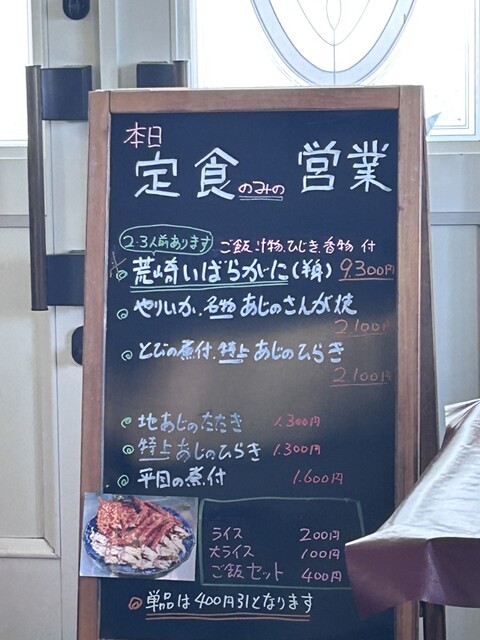 本日
定食のみの 営業
2.3人前あります ご飯、汁物、ひじき、香物 付
荒崎いばらがに(半身) 9300円
やりいか、名物 あじのさんが焼
2.100円
とびの煮付、特上 あじのひらき
2.100円
地あじのたたき 1.300円
特上あじのひらき 1.300円
平目の煮付 1.600円
ライス 200円
大ライス 100円
ご飯セット 400円
単品は400円引となります